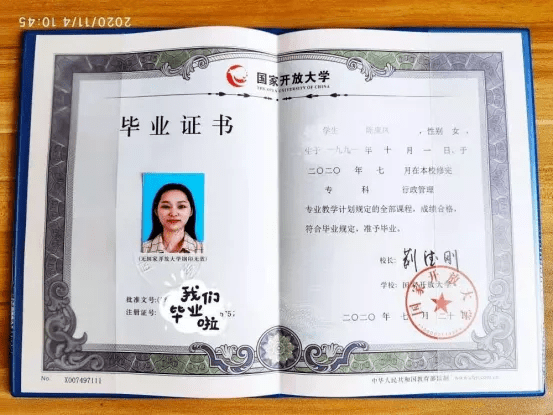 2020/11/4 10:45
国家开放大学
THE OPEN UNIVERSITY OF CHINA
毕业证书
学生
，性别 女，
生于 一九九一 年 十 月 一 日，于
二〇二〇 年 七 月在本校修完
专 科 行政管理
专业教学计划规定的全部课程，成绩合格，
符合毕业规定，准予毕业。
(无国家开放大学钢印无效)
校长：
学校：国家开放大学
批准文号:
注册证号:
我们
毕业啦
国家开放大学
二〇二〇 年 七 月 二十
No. X007497111
中华人民共和国教育部监制